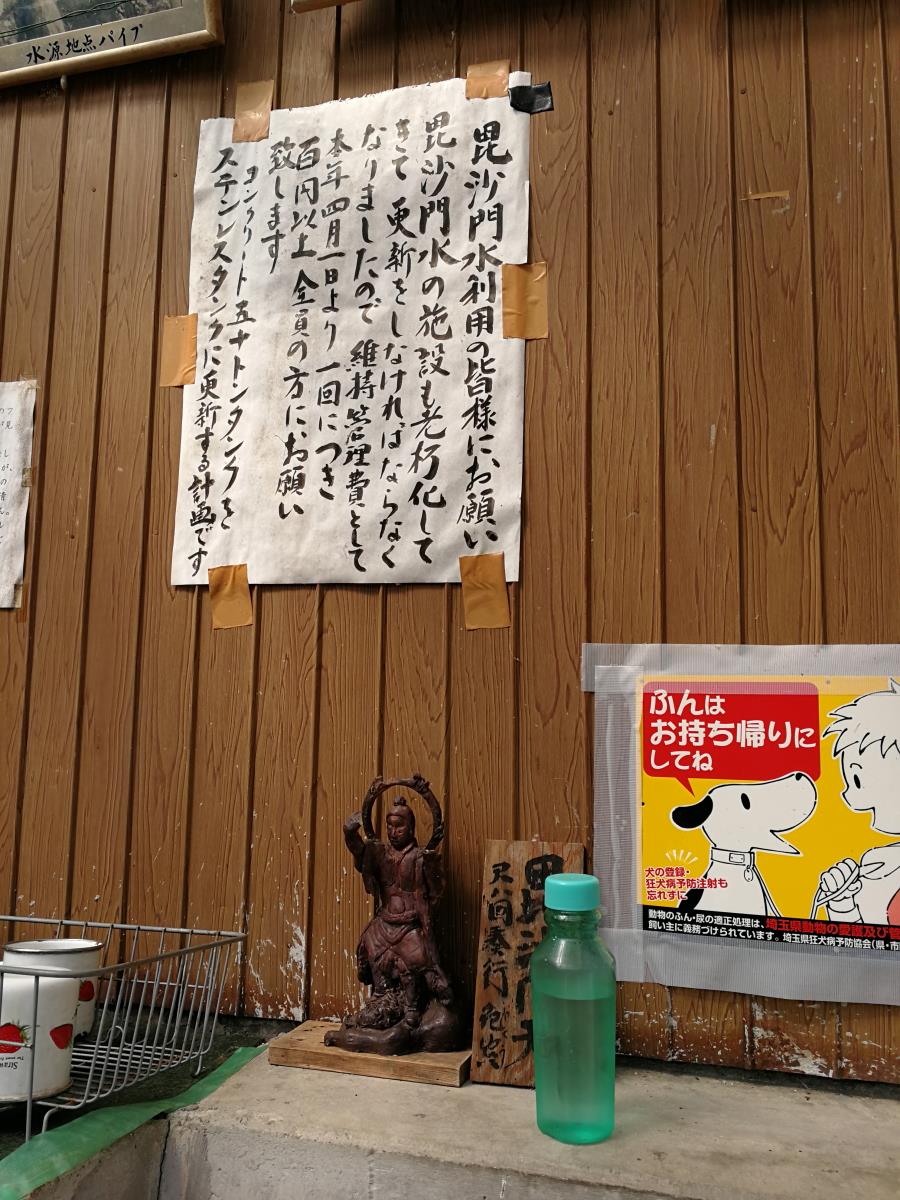 水源地点パイプ
毘沙門水利用の皆様にお願い
毘沙門水の施設も老朽化して
きて更新をしなければならなく
なりましたので維持管理費として
本年四月一日より一回につき
百円以上全員の方にお願い
致します
コンクリート五十トンタンクを
ステンレスタンクに更新する計画です
ふんは
お持ち帰りに
してね
犬の登録・
狂犬病予防注射も
忘れずに
動物のふん・尿の適正処理は、埼玉県動物の愛護及び管
飼い主に義務づけられています。埼玉県狂犬病予防協会(県・市